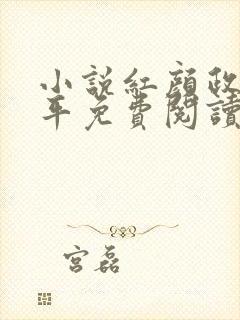 小說紅顏政
年免費閱讀
宮磊